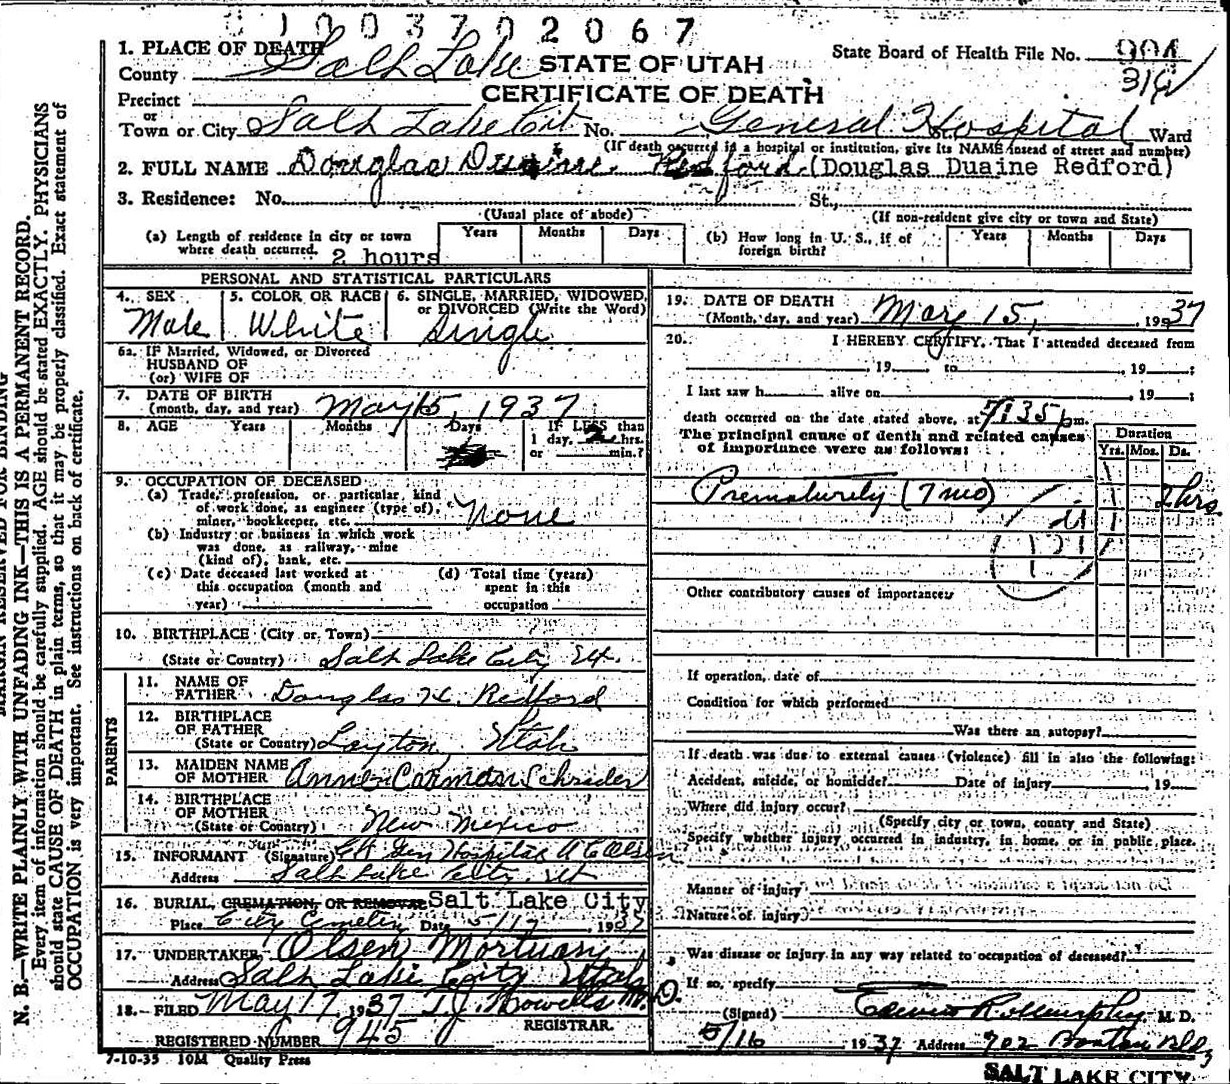 0 1 0 0 3 7 0 2 0 6 7
1. PLACE OF DEATH
County Salt Lake
STATE OF UTAH
CERTIFICATE OF DEATH
State Board of Health File No. 904
Precinct
or
Town or City Salt Lake City No. General Hospital Ward
(If death occurred in a hospital or institution, give its NAME insead of street and number)
2. FULL NAME Douglas Duaine Redford (Douglas Duaine Redford)
3. Residence: No. St.,
(Usual place of abode) (If non-resident give city or town and State)
(a) Length of residence in city or town where death occurred. 2 hours
Years Months Days
(b) How long in U. S., if of foreign birth?
Years Months Days
PERSONAL AND STATISTICAL PARTICULARS
4. SEX Male
5. COLOR OR RACE White
6. SINGLE, MARRIED, WIDOWED, or DIVORCED (Write the Word) Single
6a. IF Married, Widowed, or Divorced
HUSBAND OF
(or) WIFE OF
7. DATE OF BIRTH
(month, day, and year) May 15, 1937
8. AGE Years Months Days
IF LESS than
1 day, 2 hrs.
or min.?
9. OCCUPATION OF DECEASED
(a) Trade, profession, or particular kind
of work done, as engineer (type of),
miner, bookkeeper, etc. None
(b) Industry or business in which work
was done, as railway, mine
(kind of), bank, etc.
(c) Date deceased last worked at
this occupation (month and
year)
(d) Total time (years)
spent in this
occupation
10. BIRTHPLACE (City or Town)
(State or Country) Salt Lake City Ut.
PARENTS
11. NAME OF
FATHER Douglas H. Redford
12. BIRTHPLACE
OF FATHER
(State or Country) Layton, Utah
13. MAIDEN NAME
OF MOTHER Anne Carman Schrader
14. BIRTHPLACE
OF MOTHER
(State or Country) New Mexico
15. INFORMANT (Signature) Gen Hospital
Address Salt Lake City, Ut
16. BURIAL, CREMATION, OR REMOVAL Salt Lake City
Place City Cemetery Date 5/17, 1937
17. UNDERTAKER Olsen Mortuary
Address Salt Lake City Utah
18. FILED May 17 1937 T.J. Howells M.D.
REGISTRAR.
REGISTERED NUMBER 945
7-10-35 10M Quality Press
19. DATE OF DEATH
(Month, day, and year) May 15, 1937
20. I HEREBY CERTIFY, That I attended deceased from
, 19 to , 19 ;
I last saw h alive on , 19 ;
death occurred on the date stated above, at 7:35 p m.
The principal cause of death and related causes
of importance were as follows:
Duration
Yrs. Mos. Ds.
Prematurely (7 mo) 2 hrs.
Other contributory causes of importance:
If operation, date of
Condition for which performed
Was there an autopsy?
If death was due to external causes (violence) fill in also the following:
Accident, suicide, or homicide? Date of injury 19
Where did injury occur?
(Specify city or town, county and State)
Specify whether injury occurred in industry, in home, or in public place.
Manner of injury
Nature of injury
Was disease or injury in any way related to occupation of deceased?
If so, specify
(Signed) M. D.
5/16 1937 Address 902 Boston Bldg
SALT LAKE CITY
MARGIN RESERVED FOR BINDING
N. B.—WRITE PLAINLY WITH UNFADING INK—THIS IS A PERMANENT RECORD.
Every item of information should be carefully supplied. AGE should be stated EXACTLY. PHYSICIANS
should state CAUSE OF DEATH in plain terms, so that it may be properly classified. Exact statement of
OCCUPATION is very important. See instructions on back of certificate.